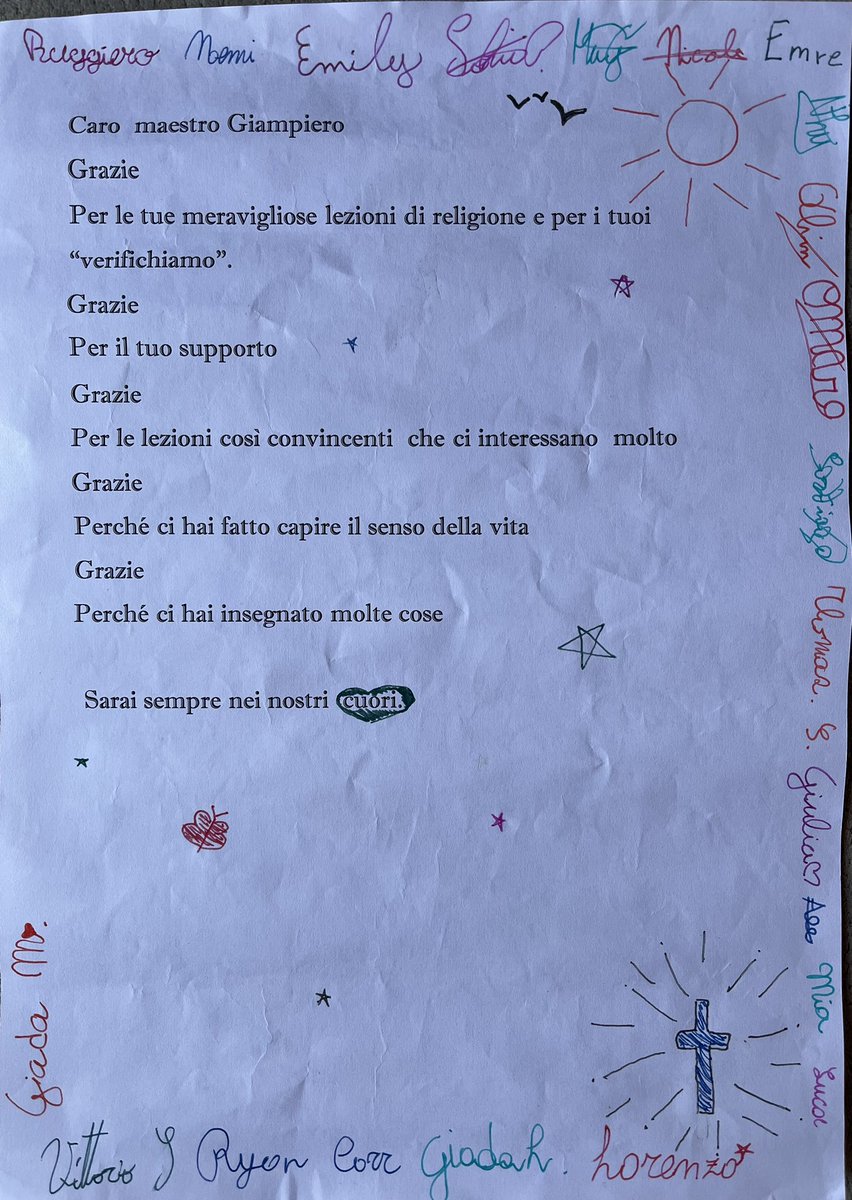 Ruggiero Noemi Emily Nicole Emre
Caro maestro Giampiero
Grazie
Per le tue meravigliose lezioni di religione e per i tuoi
“verifichiamo”.
Grazie
Per il tuo supporto
Grazie
Per le lezioni così convincenti che ci interessano molto
Grazie
Perché ci hai fatto capire il senso della vita
Grazie
Perché ci hai insegnato molte cose
Sarai sempre nei nostri cuori.
Thomas. S.
Giulia
Mia
Luca
Giada M.
Vittorio S Ryan Corr Giada h. Lorenzo